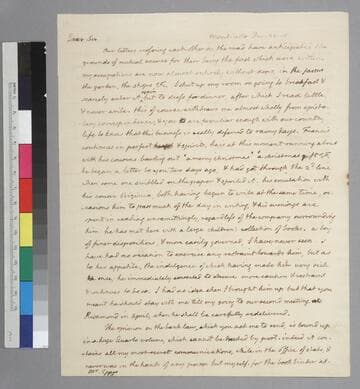 Dear Sir Monticello Dec.
Our letters crossing each other on the road have anticipated the
grounds of mutual excuse for their being the first which were written.
my occupations are now almost entirely without doors, in the farms
the garden, the shops &c. I shut up my room on going to breakfast &
scarcely enter it again but to sleep. for dinner after which I read little,
& never write. this of course withdraws me almost wholly from episto-
lary correspondence, & you are familiar enough with our country
life to know that this business is really deferred to rainy days. Francis
continues in perfect health & spirits, & is at this moment running about
with his cousins bawling out 'a merry christmas' 'a christmas gift' &c.
he began a letter to you two days ago, & had got through the 2d. line
when some one sulled on the paper & spoiled it. his emulation with
his cousin Virginia, both having begun to write at the same time, oc-
casions them to pass much of the day in writing, & his evenings are
spent in reading unremittingly, regardless of the company surrounding
him. he has met here with a large children's collection of books. a boy
of finer dispositions, & more easily governed, I have never seen. I
have had no occasion to exercise any restraint towards him, but as
to his appetite, the indulgence of which having made him very sick
once, he immediately consented to observe more caution & restraint
& continues to do so. I had no idea when I brought him up but that you
meant he should stay with me till my going to our second meeting at
Richmond in April, when he shall be carefully redelivered.
The opinion on the bank law, which you ask me to send, is bound up
in a huge Quarto volume, which cannot be trusted by post: indeed it con-
tains all my most secret communications, while in the office of state, &
never was in the hands of any person but myself, for the book binder at-
Mr. Eppes